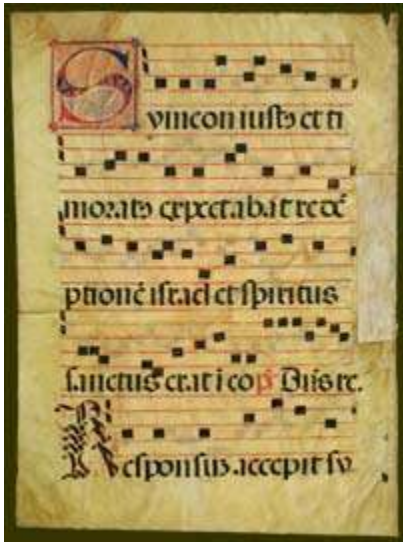 Symeon iustus et ti
moratus expectabat redē
ptionē israel et spiritus
sanctus erat i eo p̄ Dūs re.
Responsus accepit sy